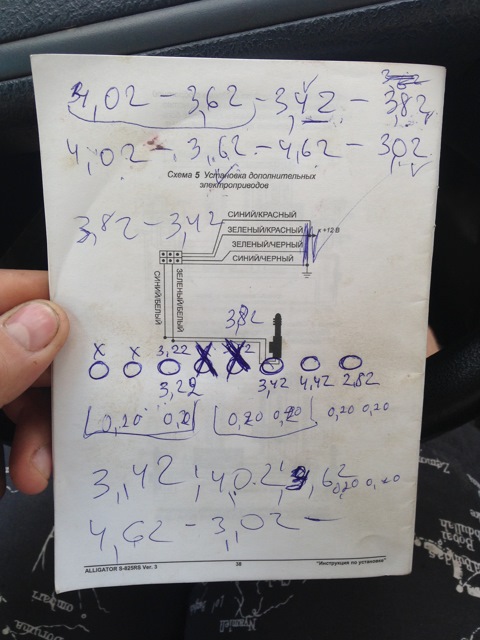 4,02 - 3,62 - 3,42 - 3,82
4,02 - 3,62 - 4,62 - 302
Схема 5 Установка дополнительных
электроприводов
3,82 - 3,42
СИНИЙ/КРАСНЫЙ
ЗЕЛЕНЫЙ/КРАСНЫЙ
к +12 В
ЗЕЛЕНЫЙ/ЧЕРНЫЙ
СИНИЙ/ЧЕРНЫЙ
СИНИЙ/БЕЛЫЙ
ЗЕЛЕНЫЙ/БЕЛЫЙ
382
x x 3,22
3,22 3,42 4,42 2,82
0,20 0,20 0,20 0,20 0,20 0,20
3,42 4,02 3,62
0,20 0,20
4,62 - 3,02 -
ALLIGATOR S-825RS Ver. 3 38 "Инструкция по установке"